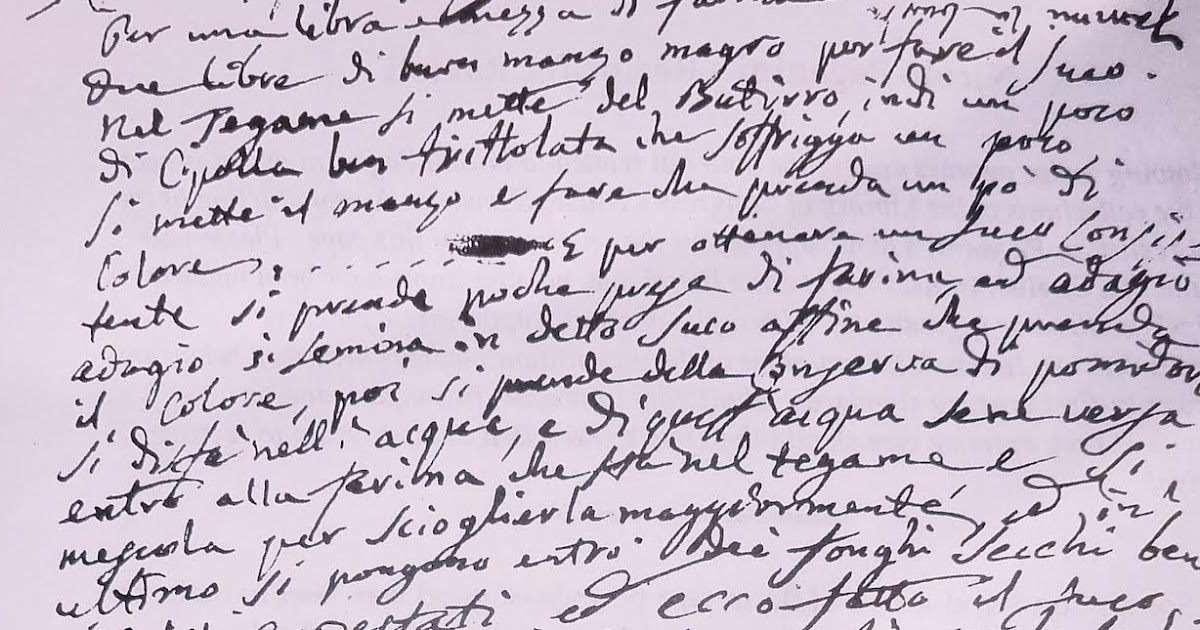 Per una libra e mezza di farina
due libre di buon manzo magro per fare il suco.
Nel Tegame si mette del Butirro, indi un poco
di Cipolla ben trittolata che soffrigga un poco
si mette il manzo e fare che prenda un po di
Colore, . . . . . . . . E per ottenere un suco Consis
tente si prende poche prese di farina, ed adagio
adagio si semina in detto suco affine che prenda
il Colore, poi si prende della Conserva di pomidoro
si disfà nell'acqua, e di quest'acqua se ne versa
entro alla farina che sta nel tegame e si
mescola per scioglierla maggiormente, ed in
ultimo si pongano entro dei fonghi secchi ben
pestati ed ecco fatto il suco.